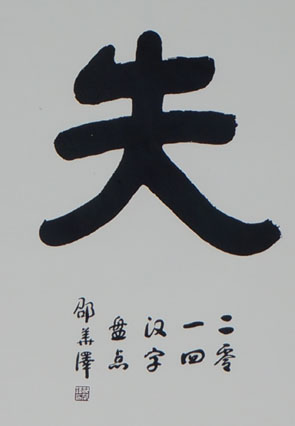 失
二零
一四
汉字
盘点
邵華澤